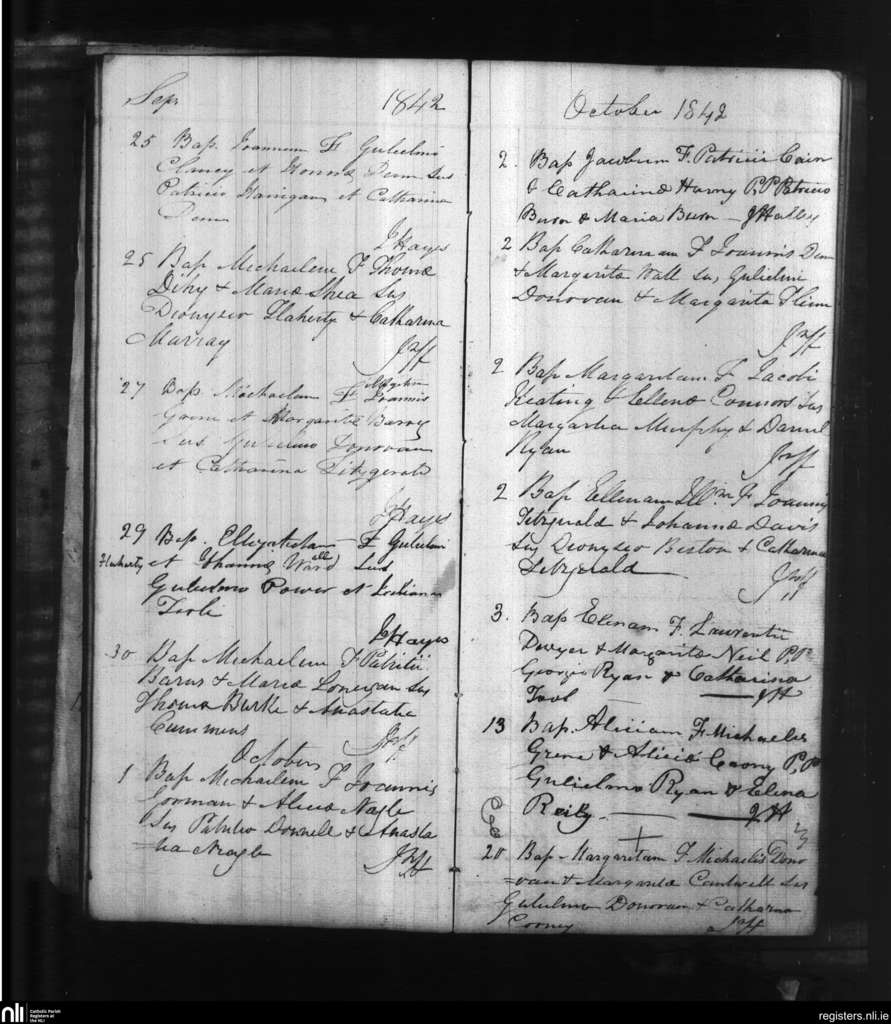 Sepr 1842
25 Bap. Joannem F Gulielmi
Clancy et Honnæ Dunn Sus
Patricio Hanigan et Catharina
Dunn
J Hayes
25 Bap Michaelem F Thomæ
& Mariæ Shea Sus
Dionysio Flaherty & Catharina
Murray
27 Bap. Michaelem F Joannis
Grene et Margaritæ Barry
Sus Gulielmo Donovan
et Catharina Fitzgerald
J Hayes
29 Bap. F Gulielmi
Flaherty et Wall Sus
Gulielmo Power et
J Hayes
30 Bap Michaelem F Patritii
& Mariæ Lonergan Sus
Thoma Burke & Anastatia
Cummens
October
1 Bap Michaelem F Joannis
Gorman & Aliciæ Nagle
Sus Patritio Donnell & Anasta
=tia Neagle
October 1842
2. Bap Jacobum F. Patricii Cain
& Catharinæ Harny P,P Patricio
Burn & Maria Burn — J Halley
2 Bap Catharinam F Joannis Dunn
& Margaritæ Wall Sus, Gulielmi
Donovan & Margarita
2 Bap Margaritam F Jacobi
Keating & Ellenæ Connors Sus
Margarita Murphy & Daniel
Ryan
2 Bap Ellenam F Joannis
Fitzgerald & Johannæ Davis
Sus Dionysio Beston & Catharina
Fitzgerald
3. Bap Elenam F. Laurentii
Dwyer & Margaritæ Neil P,P
Georgio Ryan & Catharina
Tool — J H
13 Bap. Aliciam F Michaelis
Grene & Aliciæ P,P
Gulielmo Ryan & Elena
Reily — J H
20 Bap Margaritam F Michaelis Dono
=van & Margaritæ Cantwell Sus
Gulielmo Donovan & Catharina
Cooney
nli
Catholic Parish
Registers at
the NLI
registers.nli.ie